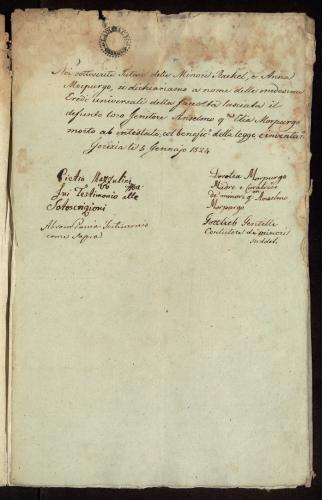 Noi sottoscritti Tutori delle Minori Rachel, e Anna
Morpurgo, si dichiariamo a nome delle medesime
Eredi universali della facoltà lasciata il
defunto loro Genitore Anselmo qm Elia Morpurgo
morto ab intestato, col benefic° della legge, e inventa°
Gorizia li 5 Gennajo 1824
Pietro
fui Testimonio alle
Sotoscrizioni
Abram Testimonio
come Sopra
Dorotea Morpurgo
Madre e Curatrice
de minori qm Anselmo
Morpurgo
Gottlieb Gentilli
Contutore de minori
suddet.